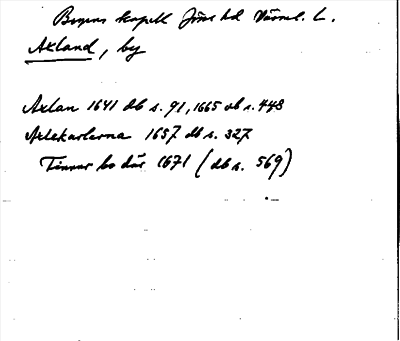 Bogens kapell Jösse hd Värml. L.
Axland, by
Axlan 1641 db s. 91, 1665 db s. 448
Axlekarlarna 1657 db s. 327
Finnar bo där 1671 (db s. 569)